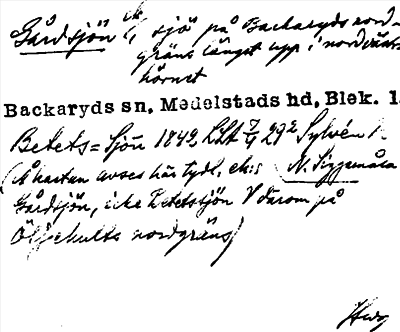 Gårdsjön, sjö på Backaryds nord-
gräns längst upp i nordvästr
hörnet
Backaryds sn, Medelstads hd, Blek. l.
Betets=Sjön 1842 LSA Sylvén
(Å kartan avses här tydl. ek: N. Siggamåla
Gårdsjön, icke Betetsjön V därom på
Öljehults nordgräns)